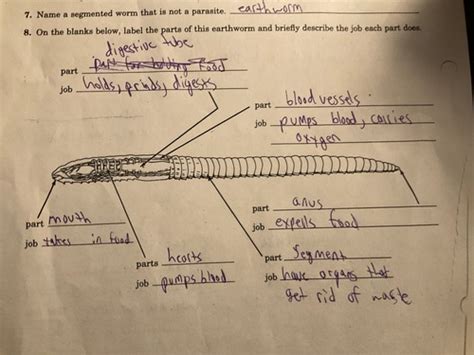 7. Name a segmented worm that is not a parasite. earthworm
8. On the blanks below, label the parts of this earthworm and briefly describe the job each part does.
digestive tube
part part for holding food
job holds, grinds, digests
part blood vessels
job pumps blood, carries
oxygen
part mouth
job takes in food
parts hearts
job pumps blood
part anus
job expells food
part Segment
job have organs that
get rid of waste